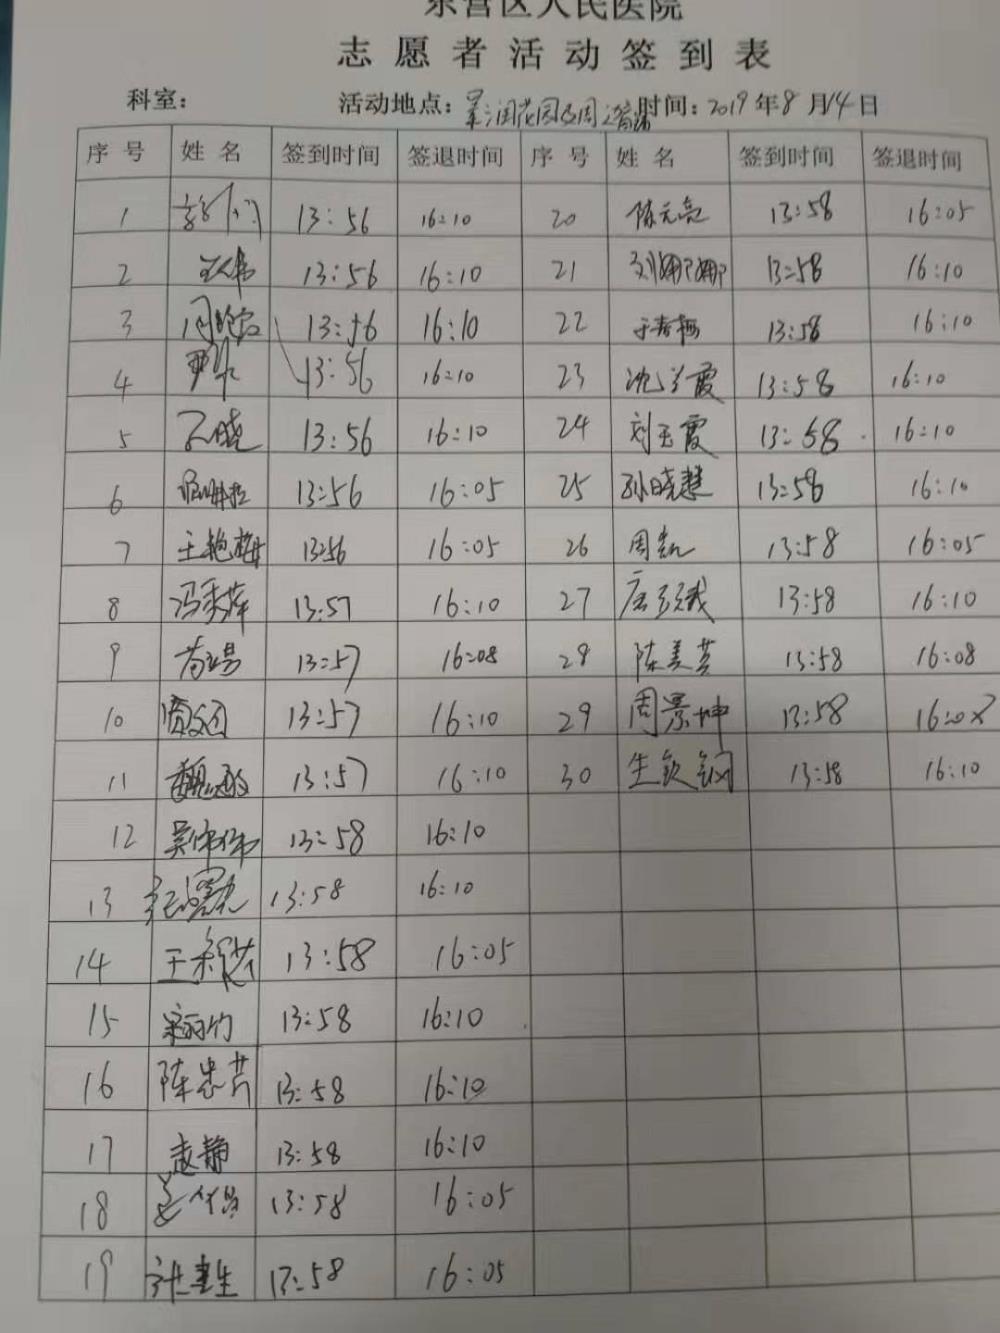 东营区人民医院
志愿者活动签到表
科室： 活动地点： 花园及周 时间：2019年8月14日
序号 姓名 签到时间 签退时间 序号 姓名 签到时间 签退时间
1 13:56 16:10 20 陈元亮 13:58 16:05
2 王伟 13:56 16:10 21 刘娜娜 13:58 16:10
3 13:56 16:10 22 于春梅 13:58 16:10
4 13:56 16:10 23 沈兰霞 13:58 16:10
5 石晓 13:56 16:10 24 刘玉霞 13:58 16:10
6 13:56 16:05 25 孙晓慧 13:58 16:10
7 王艳梅 13:56 16:05 26 周凯 13:58 16:05
8 冯秀萍 13:57 16:10 27 13:58 16:10
9 13:57 16:08 28 陈美芸 13:58 16:08
10 13:57 16:10 29 周景坤 13:58 16:08
11 13:57 16:10 30 生钦钢 13:58 16:10
12 吴伟伟 13:58 16:10
13 13:58 16:10
14 13:58 16:05
15 13:58 16:10
16 陈忠芹 13:58 16:10
17 袁静 13:58 16:10
18 13:58 16:05
19 13:58 16:05